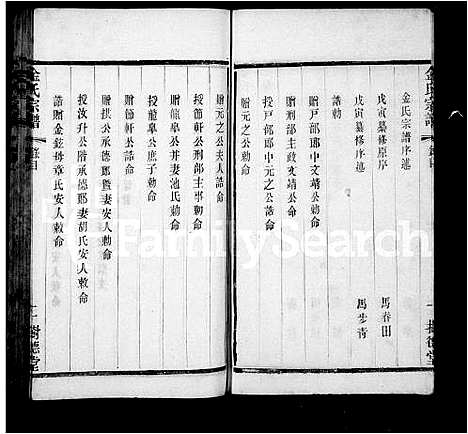 金氏宗譜序述
戊寅纂修原序 馬春田
戊寅纂修序述 馬步青
誥勅
贈刑部主政文靖公勅命
贈戶部郎中文靖公誥命
授戶部郎中元之公誥命
贈元之公誥命
贈元之公夫人誥命
授節軒公刑部主事勅命
贈節軒公誥命
贈龍阜公并妻池氏勅命
授龍阜公庶子勅命
贈拱公承德郎暨妻安人敕命
授汝升公階承德郎妻胡氏安人敕命
誥贈金鉉母章氏安人敕命
金氏宗譜
總目
一
樹德堂
FamilySearch